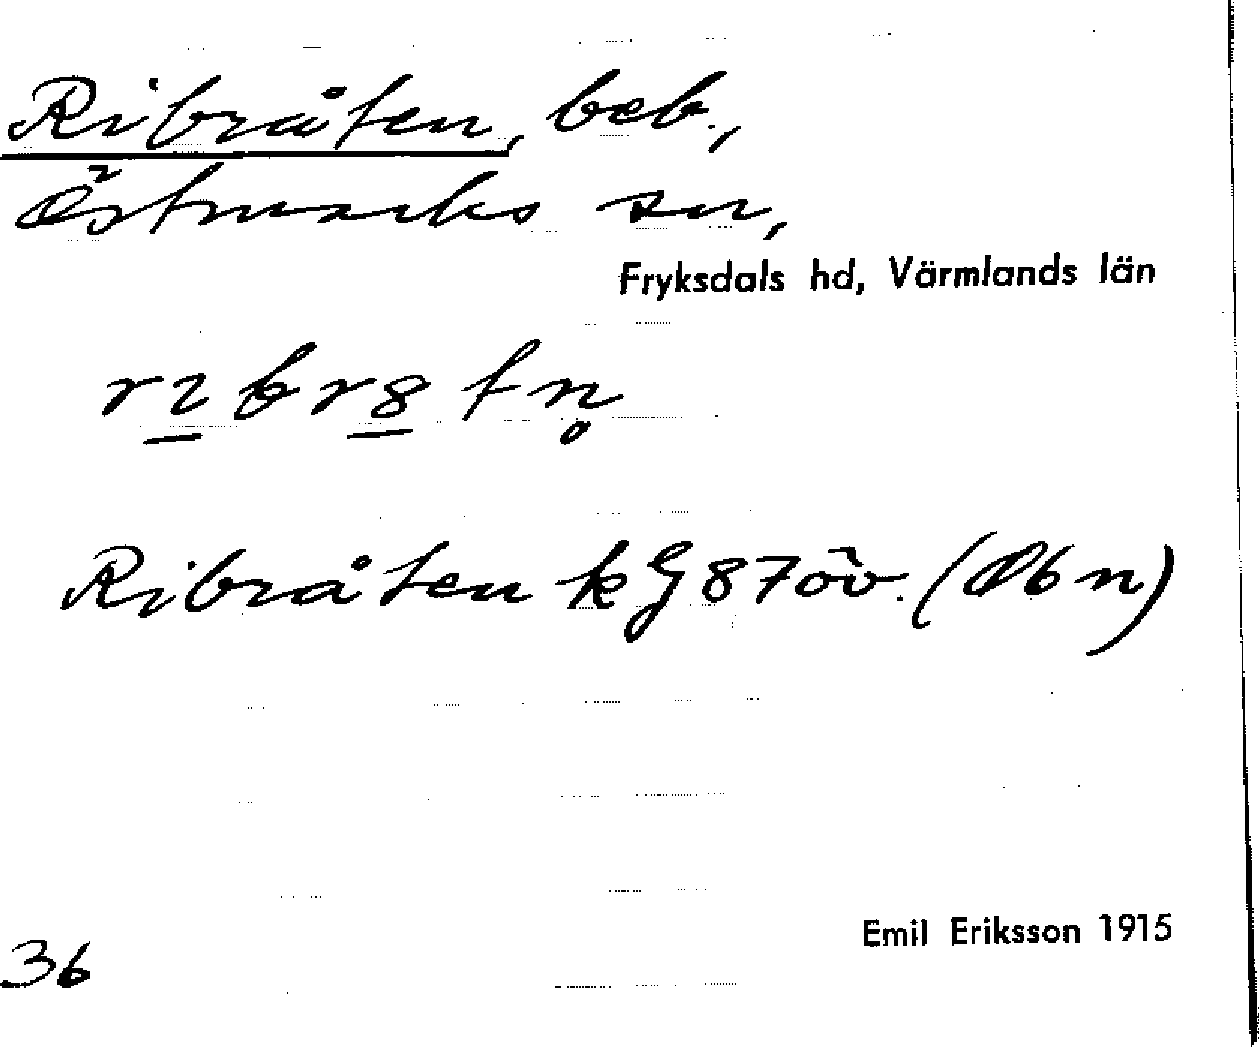 Ribråten, beb.,
Östmarks sn,
Fryksdals hd, Värmlands län
rıbr8tn̥
Ribråten kG87öv. (Obn)
36
Emil Eriksson 1915